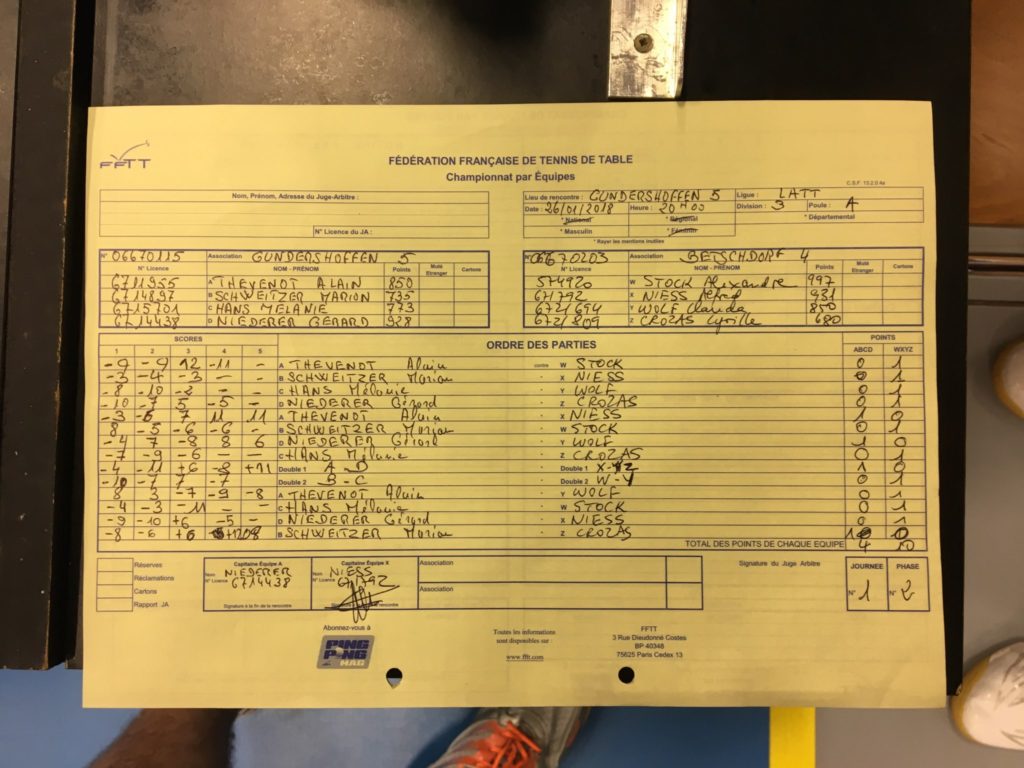 FFTT
FÉDÉRATION FRANÇAISE DE TENNIS DE TABLE
Championnat par Équipes
C.S.F. 13.2.0 4a
Nom, Prénom, Adresse du Juge-Arbitre :
N° Licence du JA :
Lieu de rencontre : GUNDERSHOFFEN 5 Ligue : LATT
Date : 26/01/2018 Heure : 20H00 Division : 3 Poule : A
* National * Régional * Départemental
* Masculin * Féminin
* Rayer les mentions inutiles
N° 06670115 Association GUNDERSHOFFEN 5
N° Licence NOM - PRÉNOM Points Muté Etranger Cartons
6711955 A THEVENOT ALAIN 850
6714897 B SCHWEITZER MARION 735
6715701 C HANS MELANIE 773
6714438 D NIEDERER GÉRARD 928
N° 06670203 Association BETSCHDORF 4
N° Licence NOM - PRÉNOM Points Muté Etranger Cartons
574920 W STOCK Alexandre 997
671792 X NIESS Alfred 931
6721694 Y WOLF Claudia 850
6721809 Z CROZAS Cyrille 680
SCORES ORDRE DES PARTIES POINTS
1 2 3 4 5 ABCD WXYZ
-9 -9 12 -11 - A THEVENOT Alain contre W STOCK 0 1
-3 -4 -3 - - B SCHWEITZER Marion X NIESS 0 1
-8 -10 -2 - - C HANS Mélanie Y WOLF 0 1
-10 -7 5 -5 - D NIEDERER Gérard Z CROZAS 0 1
-3 -6 7 11 11 A THEVENOT Alain X NIESS 1 0
8 -5 -6 -6 - B SCHWEITZER Marion W STOCK 0 1
-4 7 -8 8 6 D NIEDERER Gérard Y WOLF 1 0
-7 -9 -6 - - C HANS Mélanie Z CROZAS 0 1
-4 -11 +6 +11 Double 1 A D Double 1 X-Z 1 0
-10 7 -7 Double 2 B-C Double 2 W-Y 0 1
8 3 -7 -9 -8 A THEVENOT Alain Y WOLF 0 1
-4 -3 -11 - - C HANS Mélanie W STOCK 0 1
-9 -10 +6 -5 - D NIEDERER Gérard X NIESS 0 1
-8 -6 +6 B SCHWEITZER Marion Z CROZAS 1 0
TOTAL DES POINTS DE CHAQUE EQUIPE 4 10
Réserves
Réclamations
Cartons
Rapport JA
Capitaine Équipe A
Nom NIEDERER
N° Licence 6714438
Signature à la fin de la rencontre
Capitaine Équipe X
Nom NIESS
N° Licence 671792
Association
Association
Signature du Juge Arbitre
JOURNEE PHASE
N° 1 N° 2
Abonnez-vous à
PING PONG MAG
Toutes les informations
sont disponibles sur :
www.fftt.com
FFTT
3 Rue Dieudonné Costes
BP 40348
75625 Paris Cedex 13